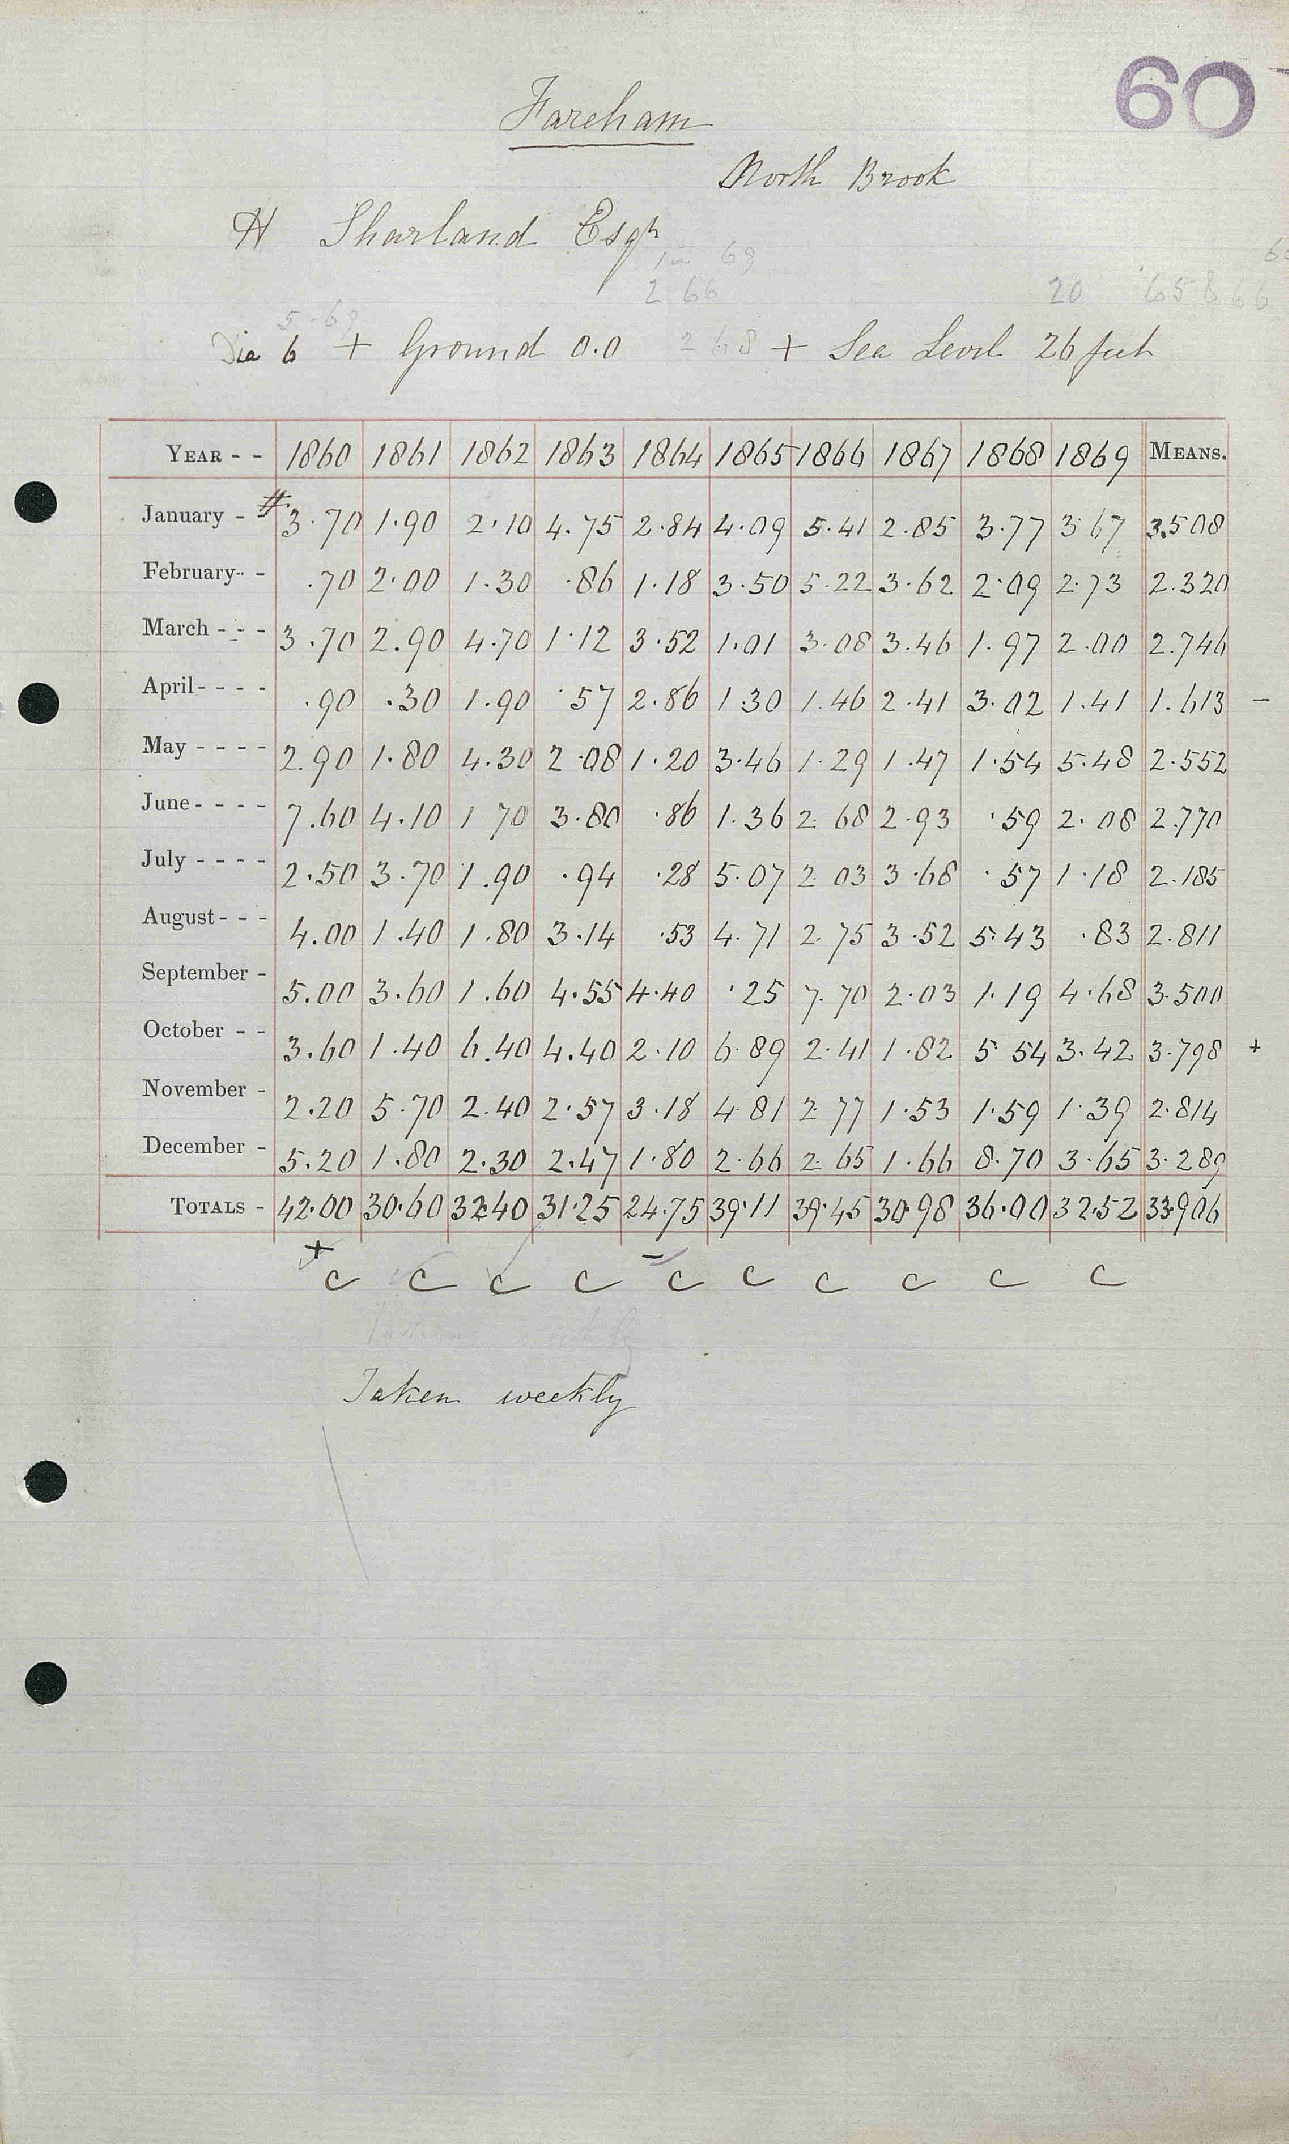 60
Fareham
North Brook
H Sharland Esqr
69
2 66
20 65 & 66
5-69
Dia 6 + Ground 0.0 2 68 + Sea Level 26 feet
YEAR - - 1860 1861 1862 1863 1864 1865 1866 1867 1868 1869 MEANS.
January - # 3.70 1.90 2.10 4.75 2.84 4.09 5.41 2.85 3.77 3.67 3.508
February - - .70 2.00 1.30 .86 1.18 3.50 5.22 3.62 2.09 2.73 2.320
March - - - 3.70 2.90 4.70 1.12 3.52 1.01 3.08 3.46 1.97 2.00 2.746
April - - - - .90 .30 1.90 .57 2.86 1.30 1.46 2.41 3.02 1.41 1.613 -
May - - - - 2.90 1.80 4.30 2.08 1.20 3.46 1.29 1.47 1.54 5.48 2.552
June - - - - 7.60 4.10 1 70 3.80 .86 1.36 2.68 2.93 .59 2.08 2.770
July - - - - 2.50 3.70 1.90 .94 .28 5.07 2 03 3.68 .57 1.18 2.185
August - - - 4.00 1.40 1.80 3.14 .53 4.71 2.75 3.52 5.43 .83 2.811
September - 5.00 3.60 1.60 4.55 4.40 .25 7.70 2.03 1.19 4.68 3.500
October - - 3.60 1.40 6.40 4.40 2.10 6.89 2.41 1.82 5 54 3.42 3.798 +
November - 2.20 5.70 2.40 2.57 3.18 4.81 2.77 1.53 1.59 1.39 2.814
December - 5.20 1.80 2.30 2.47 1.80 2.66 2 65 1.66 8.70 3.65 3.289
TOTALS - 42.00 30.60 32.40 31.25 24.75 39.11 39.45 30.98 36.00 32.52 33.906
+ -
c c c c c c c c c c
Taken weekly